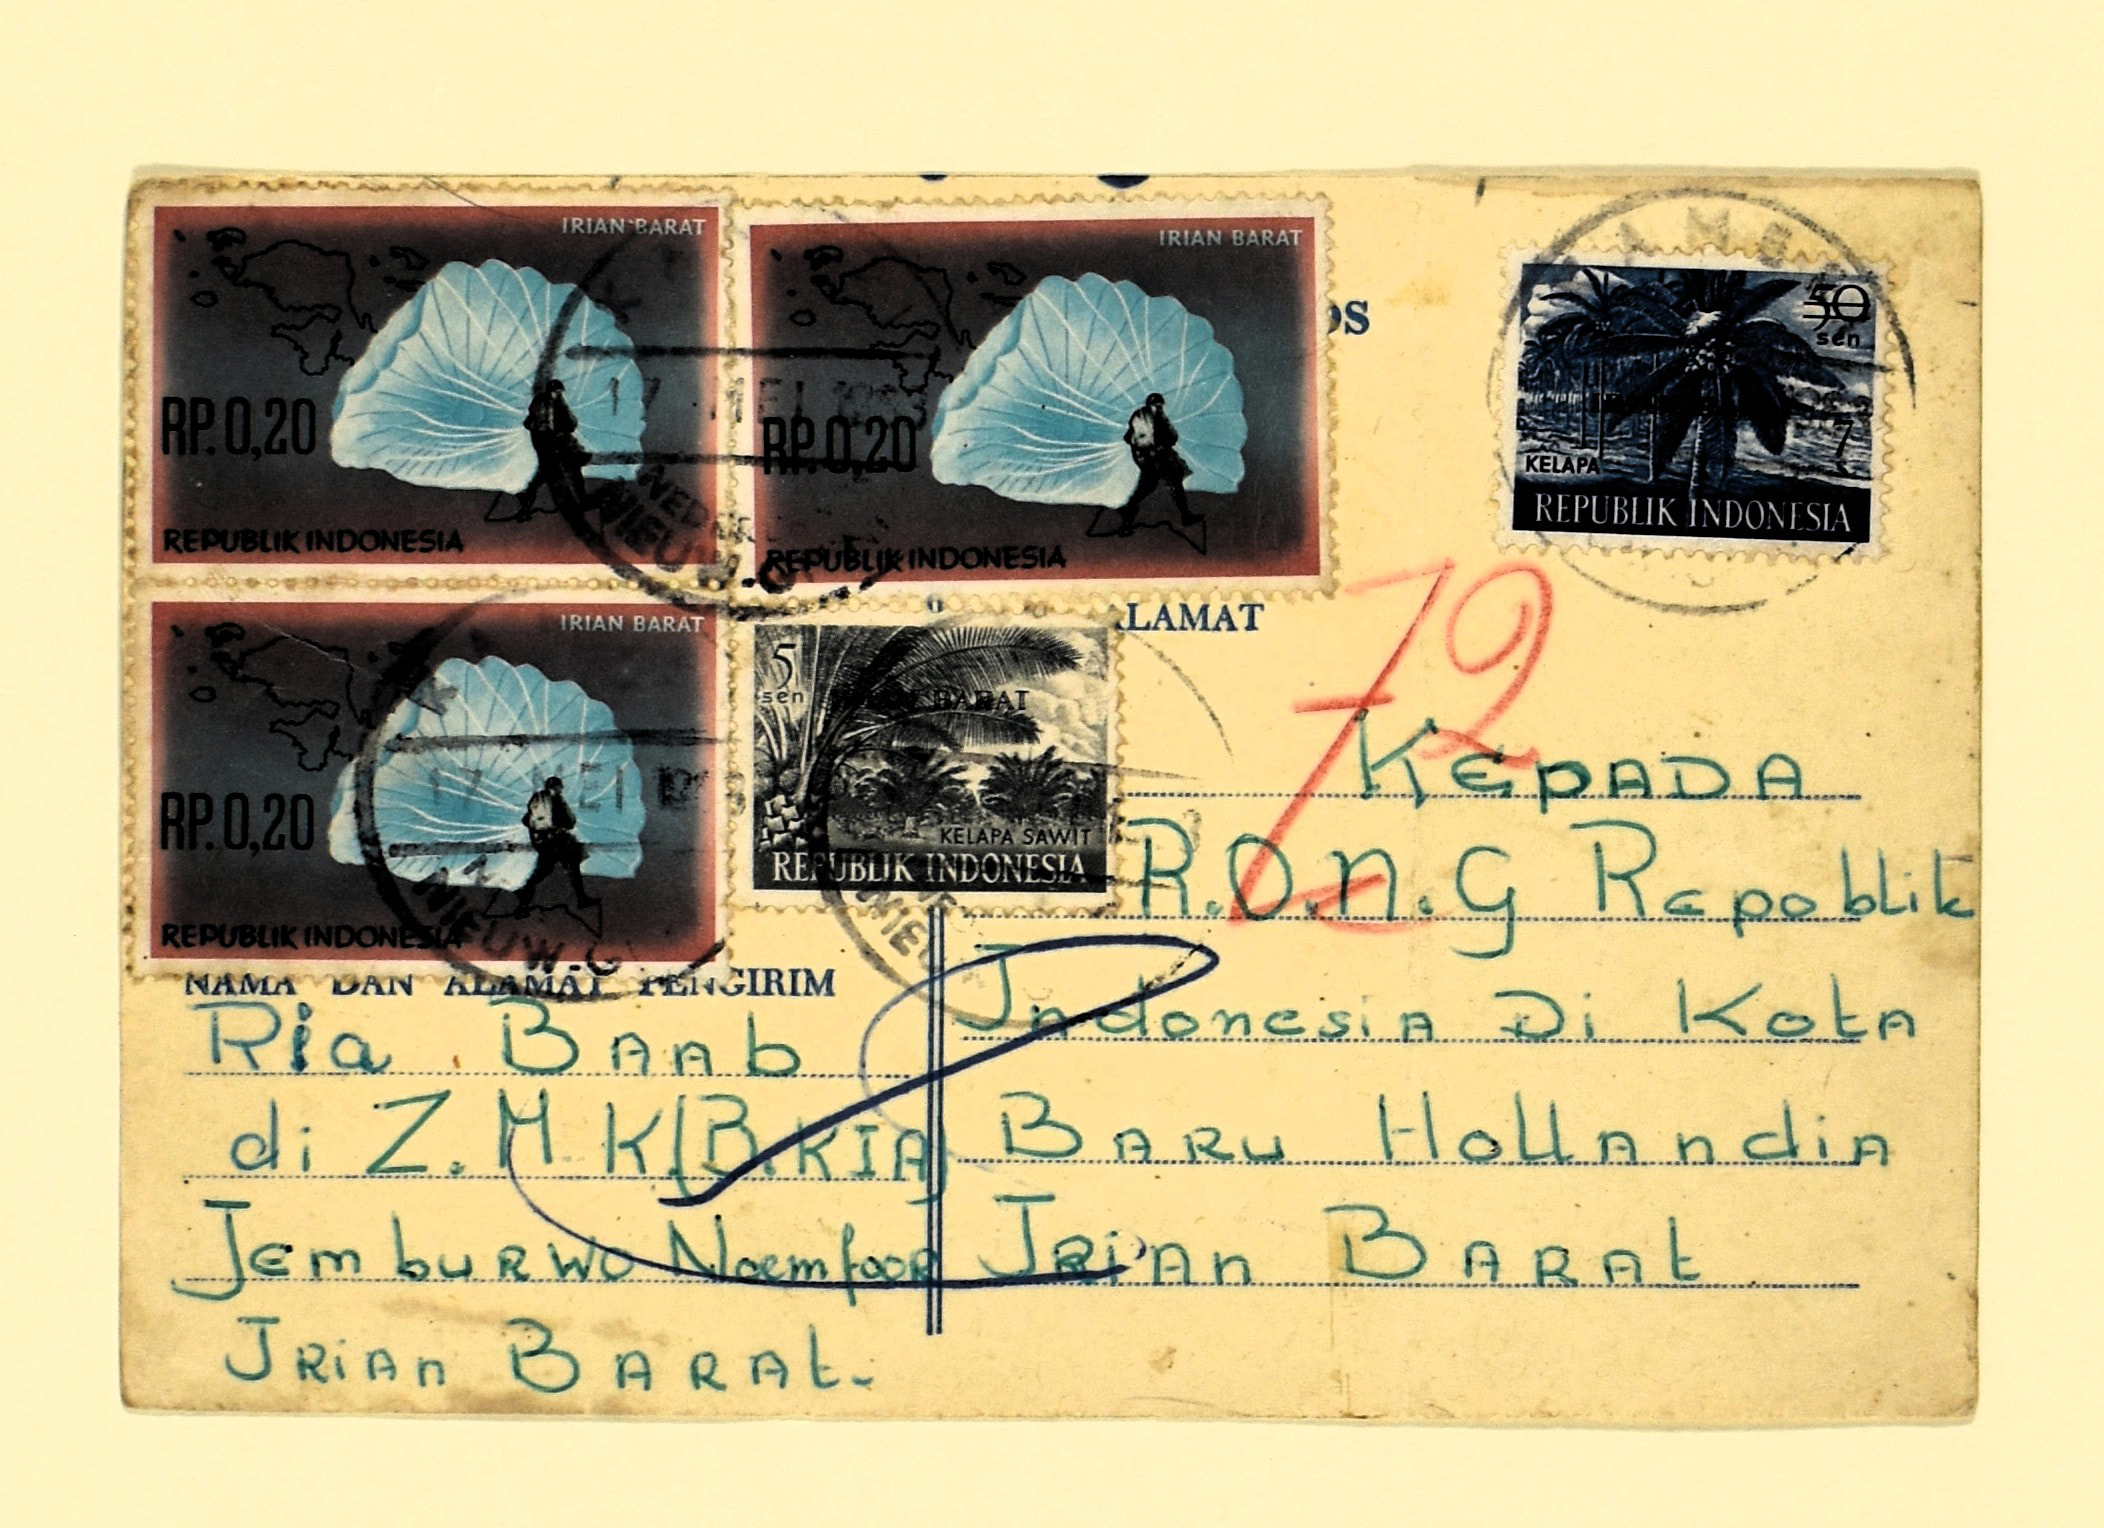 IRIAN BARAT
RP.0,20
REPUBLIK INDONESIA
IRIAN BARAT
RP.0,20
REPUBLIK INDONESIA
50
sen
7
KELAPA
REPUBLIK INDONESIA
OS
17 MEI
NIEUW-G
ALAMAT
IRIAN BARAT
RP.0,20
REPUBLIK INDONESIA
5
sen
BARAT
KELAPA SAWIT
REPUBLIK INDONESIA
17 MEI
NIEUW-G
72
Kepada
R.O.N.G Repoblik
Indonesia Di Kota
Baru Hollandia
Irian Barat
NAMA DAN ALAMAT PENGIRIM
Ria Baab
di Z.M.K(B.KIA)
Jemburwo Noemfoor
Irian Barat.